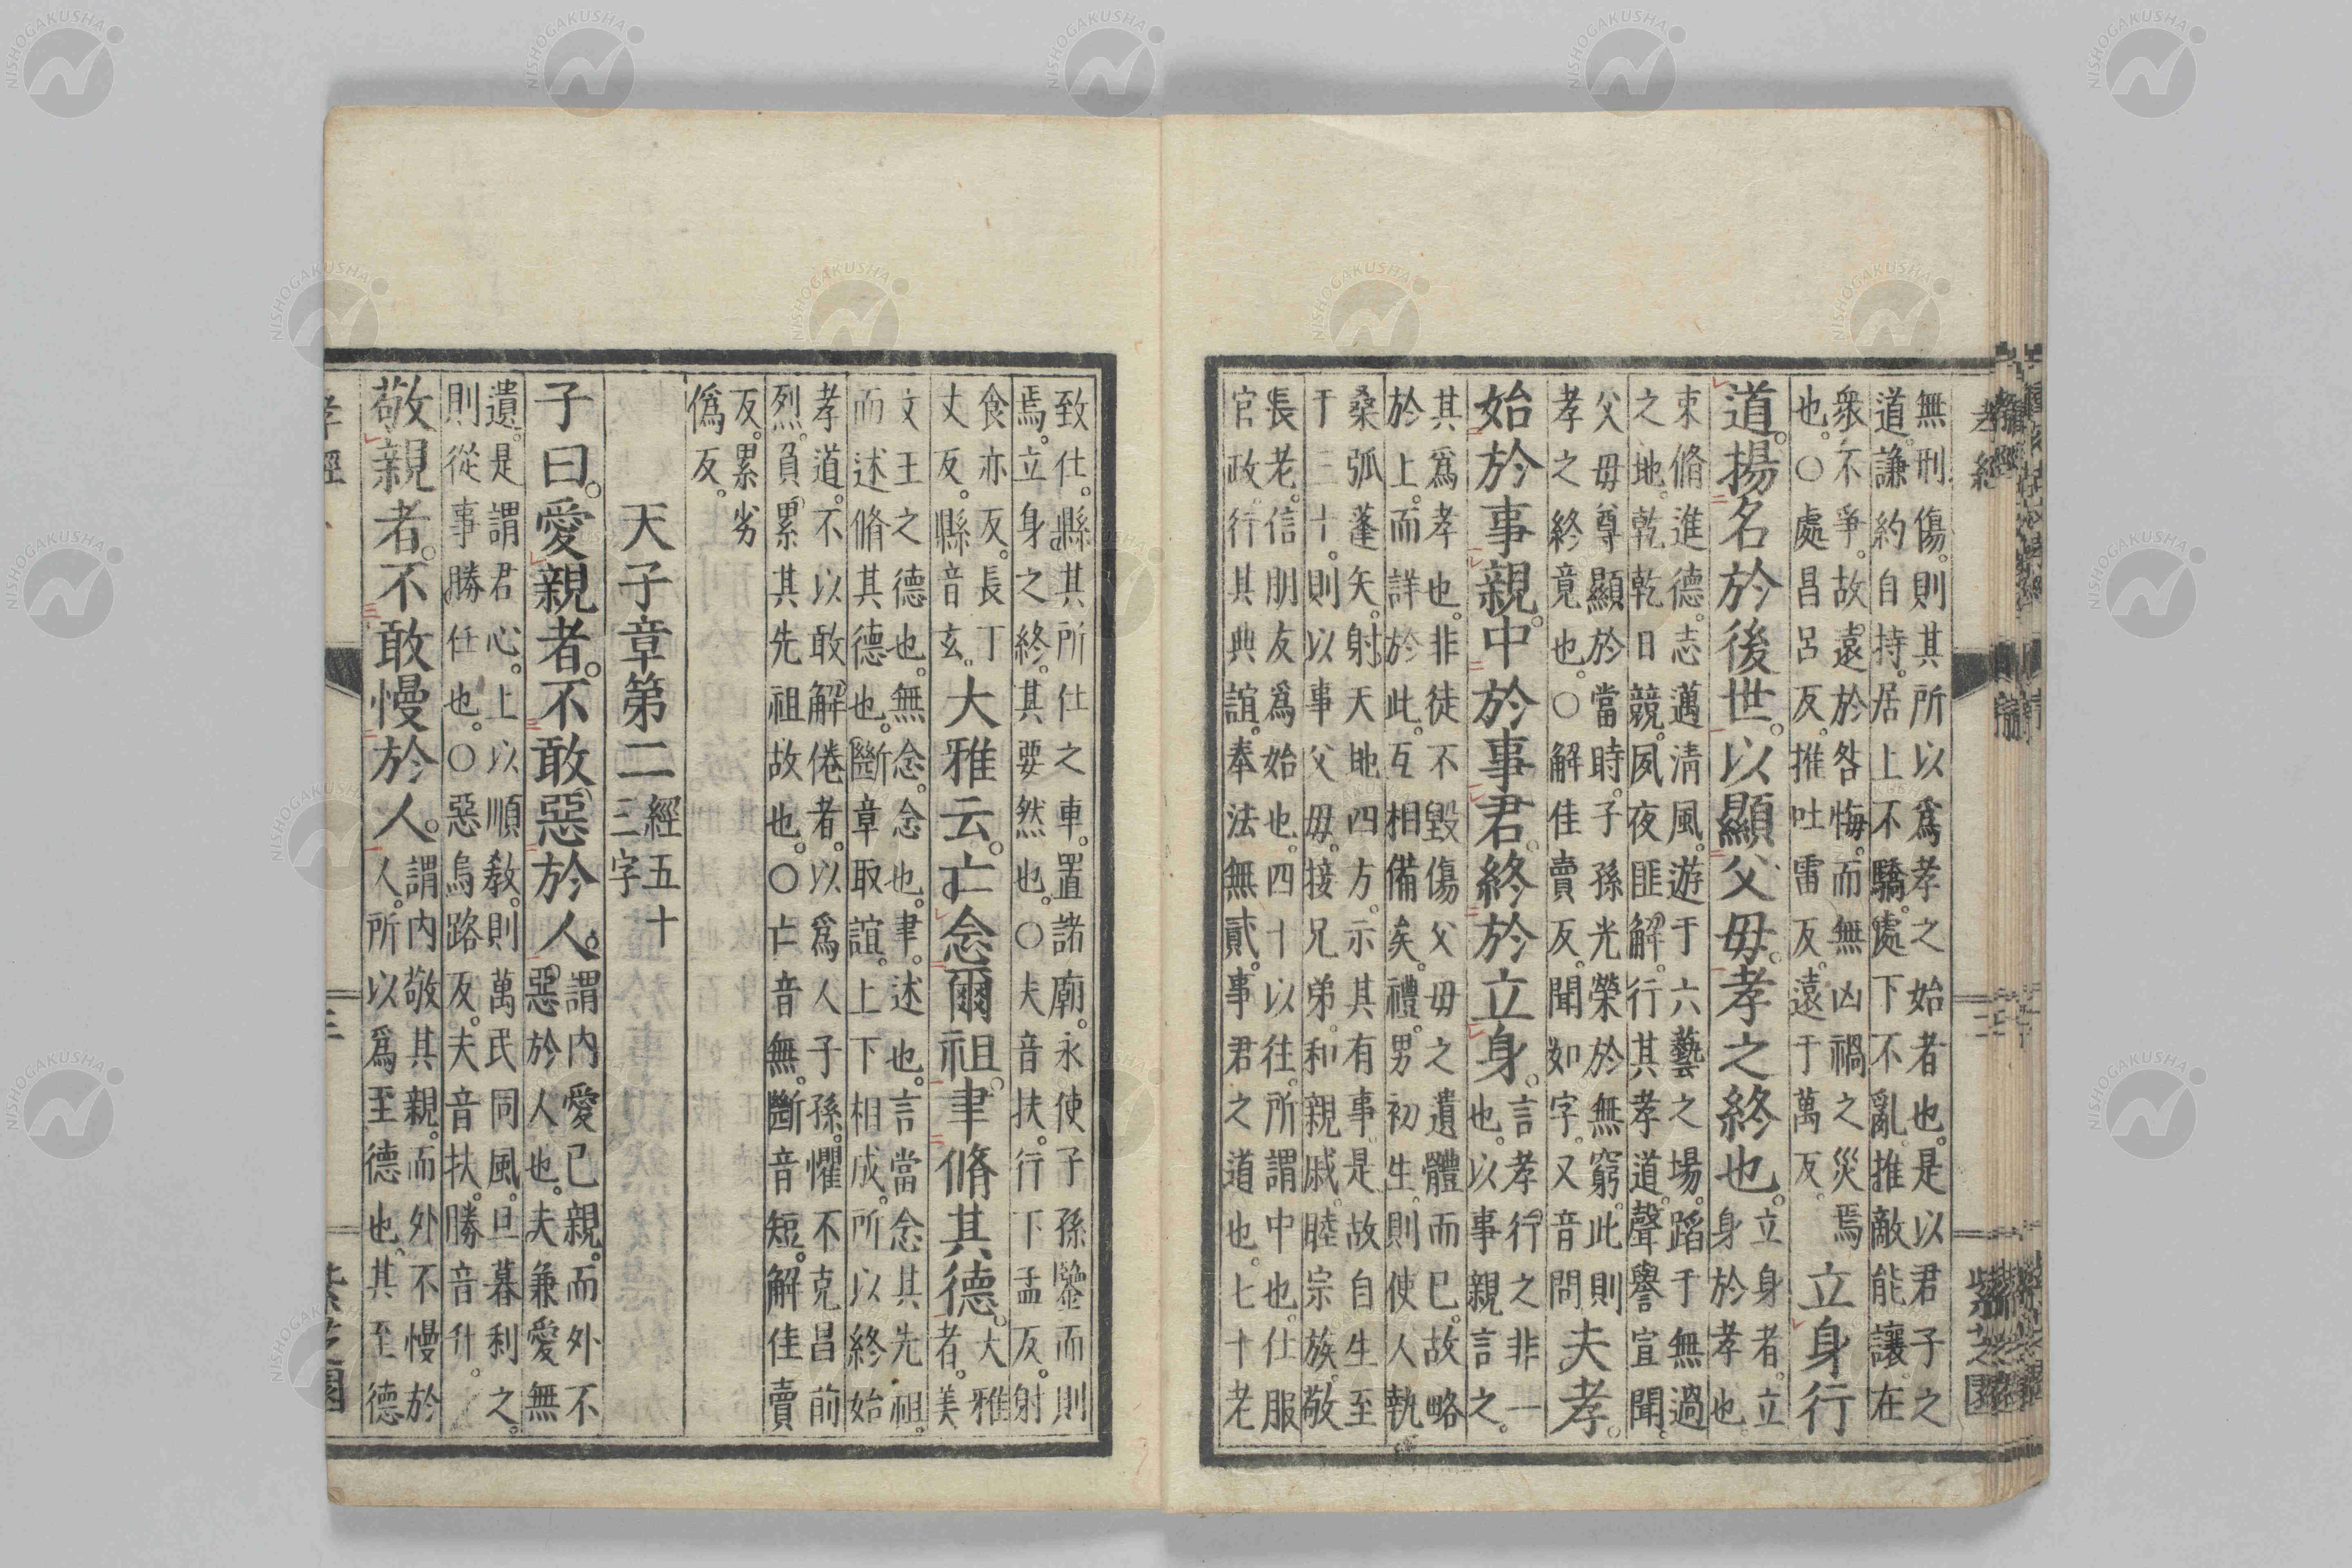 孝經
三
紫芝園
無刑傷。則其所以爲孝之始者也。是以君子之
道。謙約自持。居上不驕。處下不亂。推敵能讓。在
衆不爭。故遠於咎悔。而無凶禍之災焉
也。○處昌呂反。推吐雷反。遠于萬反。
立身行
道。揚名於後世。以顯父毋。孝之終也。
立身者。立
身於孝也
束脩進德。志邁淸風。遊于六藝之場。蹈于無過
之地。乾乾日競。夙夜匪解。行其孝道。聲譽宣聞。
父毋尊顯於當時。子孫光榮於無窮。此則
孝之終竟也。○解佳賣反。聞如字。又音問
夫孝。
始於事親。中於事君。終於立身。
言孝行之非一
也。以事親言之。
其爲孝也。非徒不毀傷父毋之遺體而已。故略
於上。而詳於此。互相備矣。禮。男初生。則使人執
桑弧蓬矢。射天地四方。示其有事。是故自生至
于三十。則以事父毋。接兄弟。和親戚。睦宗族。敬
長老。信朋友爲始也。四十以往。所謂中也。仕服
官政。行其典誼。奉法無貳。事君之道也。七十老
致仕。縣其所仕之車。置諸廟。永使子孫鑒而則
焉。立身之終。其要然也。○夫音扶。行下孟反。射
食亦反。長丁
丈反。縣音玄。
大雅云。亡念爾祖。聿脩其德。
大雅
者。美
文王之德也。無念。念也。聿。述也。言當念其先祖。
而述脩其德也。斷章取誼。上下相成。所以終始
孝道。不以敢解倦者。以爲人子孫。懼不克昌前
烈。負累其先祖故也。○亡音無。斷音短。解佳賣
反。累劣
僞反。
天子章第二
經五十
三字
子曰。愛親者。不敢惡於人。
謂内愛己親。而外不
惡於人也。夫兼愛無
遺。是謂君心。上以順敎。則萬民同風。旦暮利之。
則從事勝任也。○惡烏路反。夫音扶。勝音升。
敬親者。不敢慢於人。
謂内敬其親。而外不慢於
人。所以爲至德也。其至德
孝經
三
紫芝園